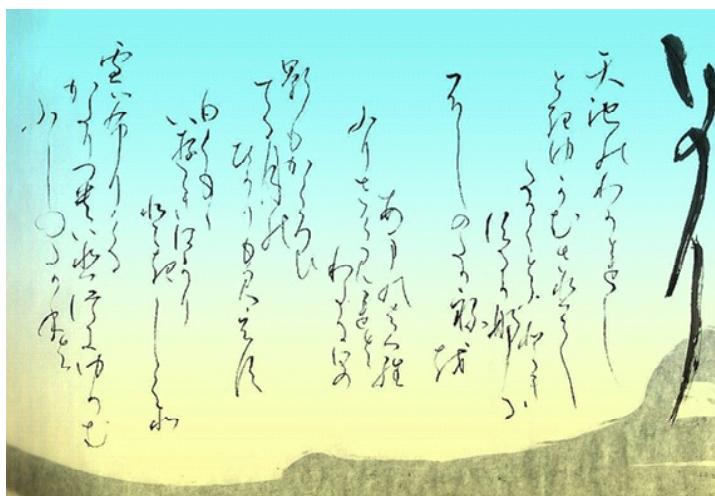 いのり
天地のわかれし
ときゆかむさびて
たかくたふとき
するがなる
ふじのたかねを
あまのはら
ふりさけ見れば
わたる日の
影もかくろひ
てる月の
ひかりも見えず
白くもも
い行きはばかり
ときじくぞ
雪は布りける
かたりつぎいひつぎゆかむ
ふじのたかねは